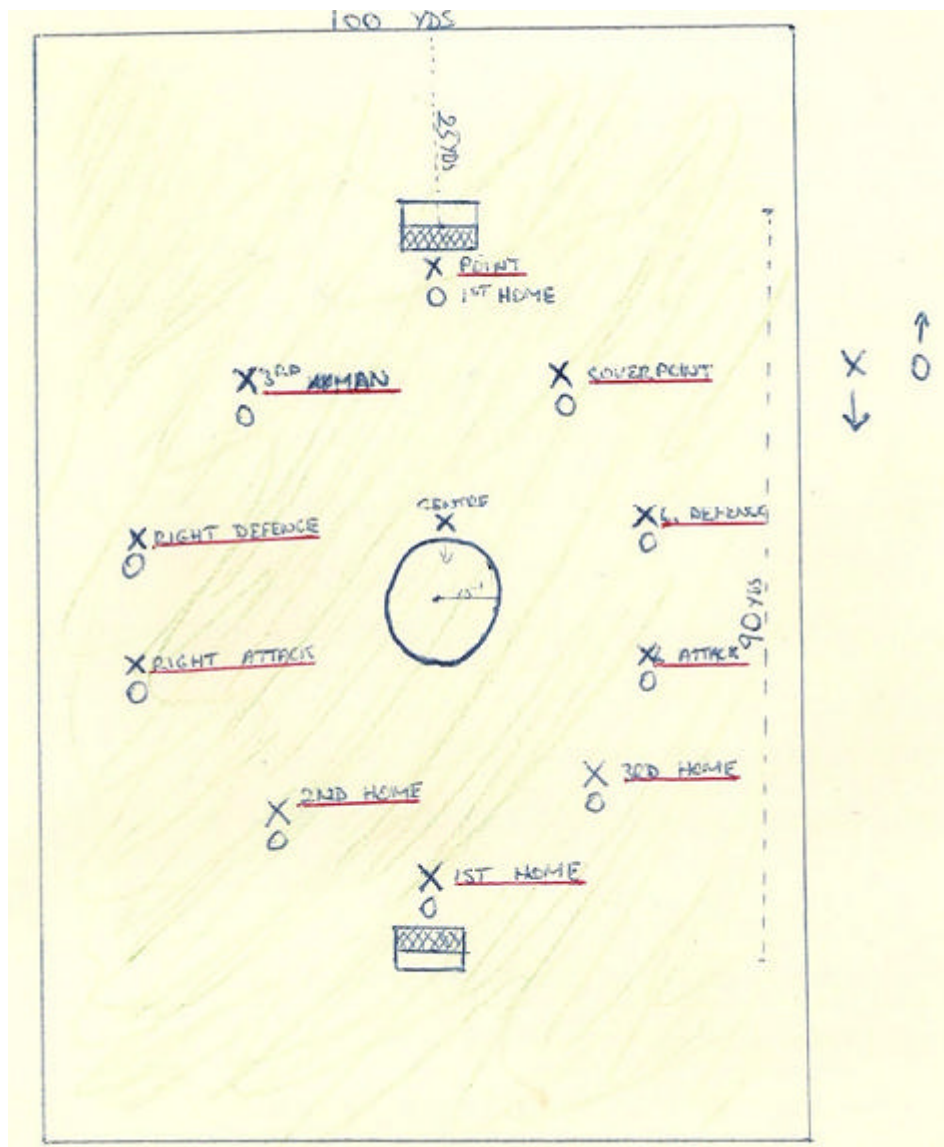 100 YDS
25 YDS
X POINT
O 1ST HOME
X 3RD MAN
O
X COVERPOINT
O
X O
CENTRE
X
X RIGHT DEFENCE
O
X L. DEFENCE
O
X RIGHT ATTACK
O
X L ATTACK
O
90 YDS
X 3RD HOME
O
X 2ND HOME
O
X 1ST HOME
O